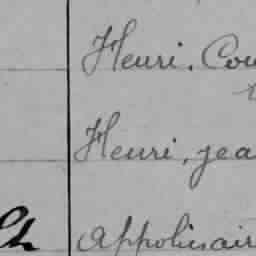 Henri. Cou
Henri, jea
Appolinair